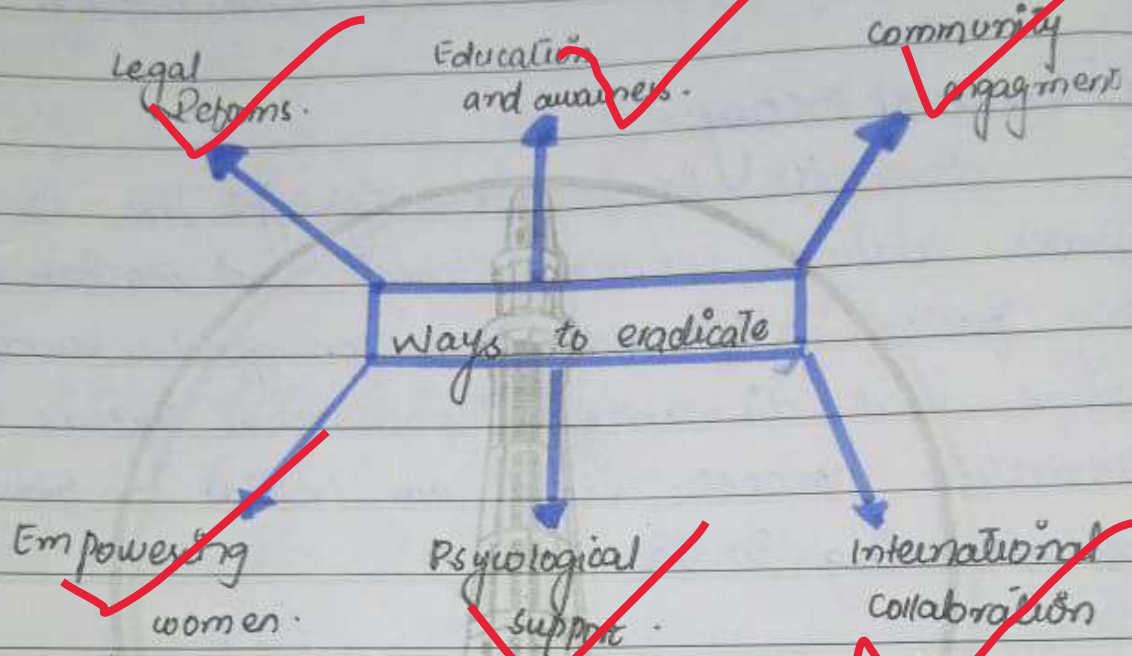 Legal
Reforms.
Education
and awainess.
community
engagment
Ways to eradicate
Empowering
women.
Psycological
support.
International
Collabration